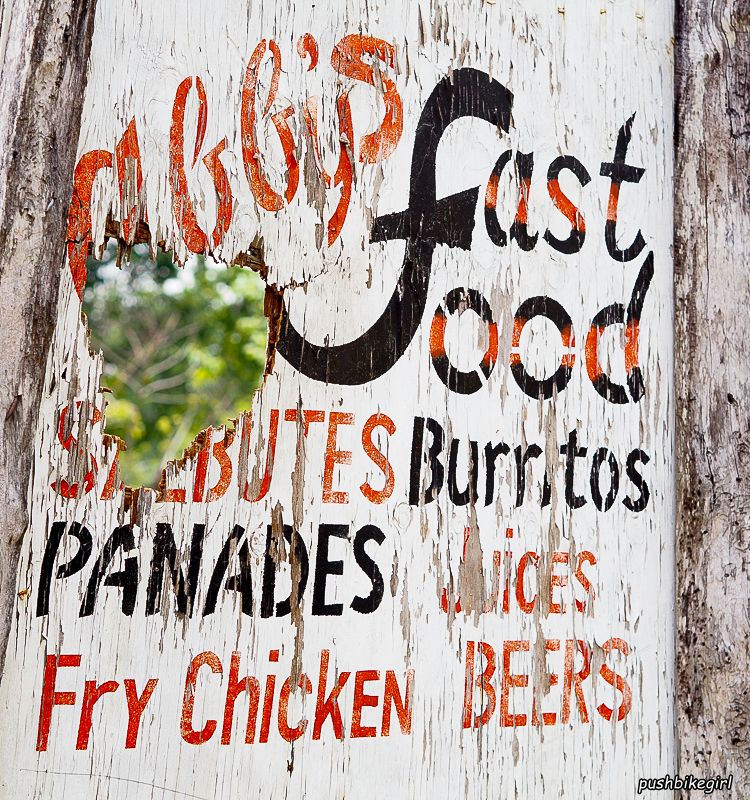 fast
food
SALBUTES Burritos
PANADES Juices
Fry Chicken BEERS
pushbikegirl